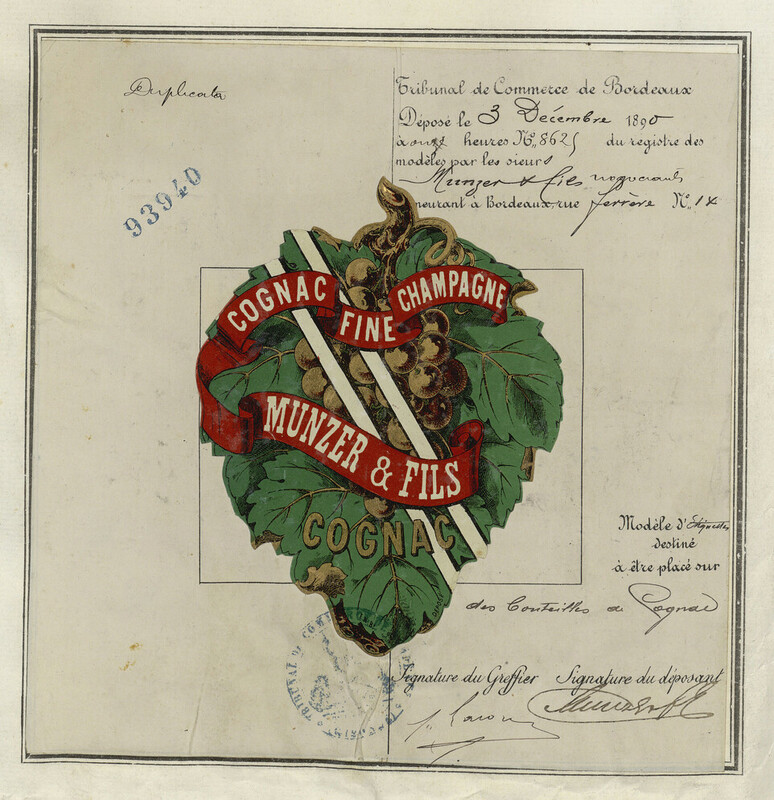 Duplicata
93940
Tribunal de Commerce de Bordeaux
Déposé le 3 Décembre 1890
à onze heures No. 8625 du registre des
modèles par les sieurs
Munzer & fils
meurant à Bordeaux, rue ferrère No. 14
COGNAC FINE CHAMPAGNE
MUNZER & FILS
COGNAC
Modèle d'Etiquette
destiné
à être placé sur
des bouteilles de Cognac
TRIBUNAL DE COM
Signature du Greffier Signature du déposant
Munzer & fils